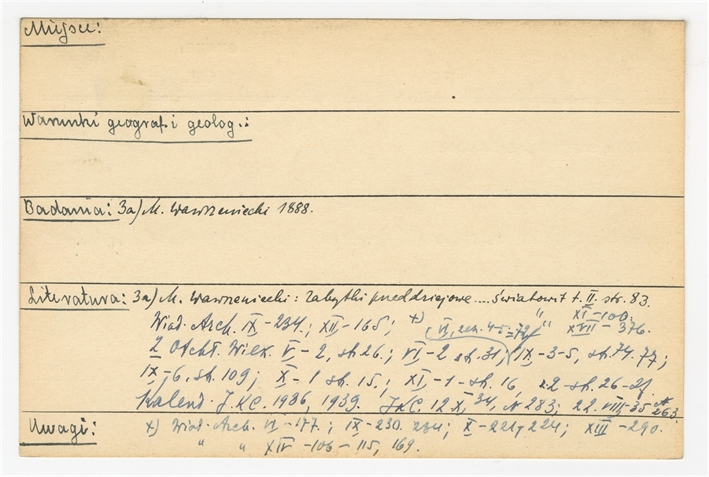 Miejsce:
Warunki geograf. i geolog.:
Badania: 3a) M. Wawrzeniecki 1888.
Literatura: 3a) M. Wawrzeniecki: Zabytki przeddziejowe .... Światowit t. II. str. 83.
" XI - 100.
Wiad. Arch. IX - 234.; XII - 165; x) VI, zesz. 4-5 = " XVII - 376.
Z Otchł. Wiek. V - 2, str. 26.; VI - 2 str. 31; IX - 3-5, str. 74. 77;
IX - 6, str. 109; X - 1 str. 15.; XI - 1 - str. 16, 22 - str. 26-
Kalend. J.K.C. 1936, 1939. JKC. 12 X, 34, № 283; 22. VIII - 35 № 263
Uwagi: x) Wiad. Arch. VI - 177.; IX - 230. 234; X - 221, 224; XIII - 290.
" " XIV - 106 - 115, 169.